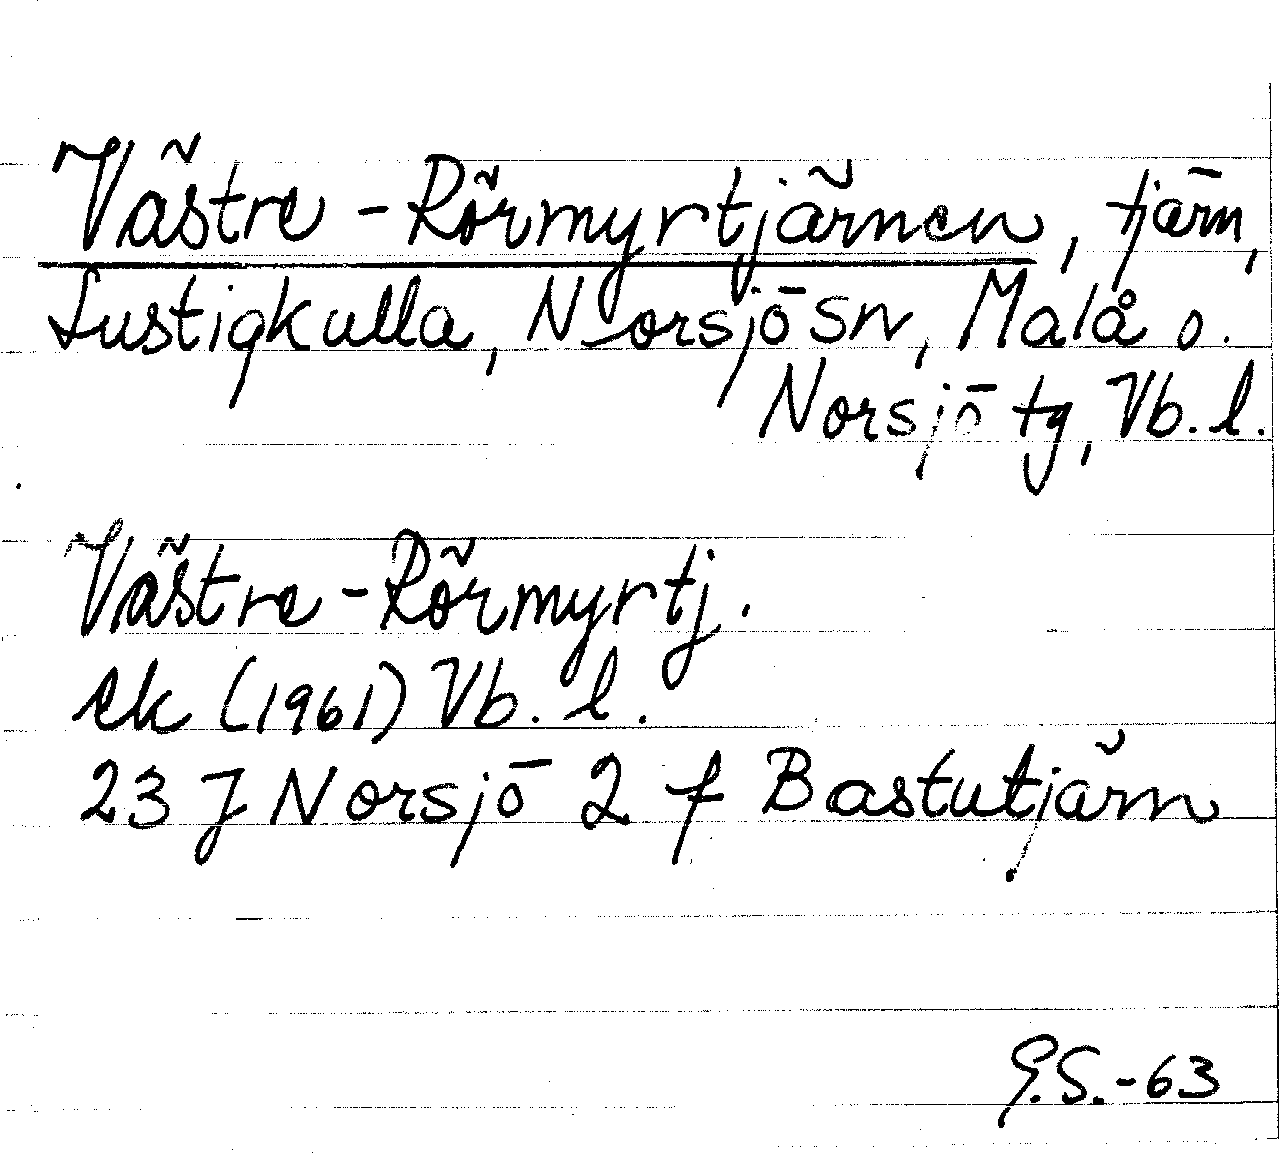 Västre-Rörmyrtjärnen, tjärn,
Lustigkulla, Norsjö sn, Malå o.
Norsjö tg, Vb. l.
Västre-Rörmyrtj.
ek (1961) Vb. l.
23 J Norsjö 2 f Bastutjärn
G.S.-63